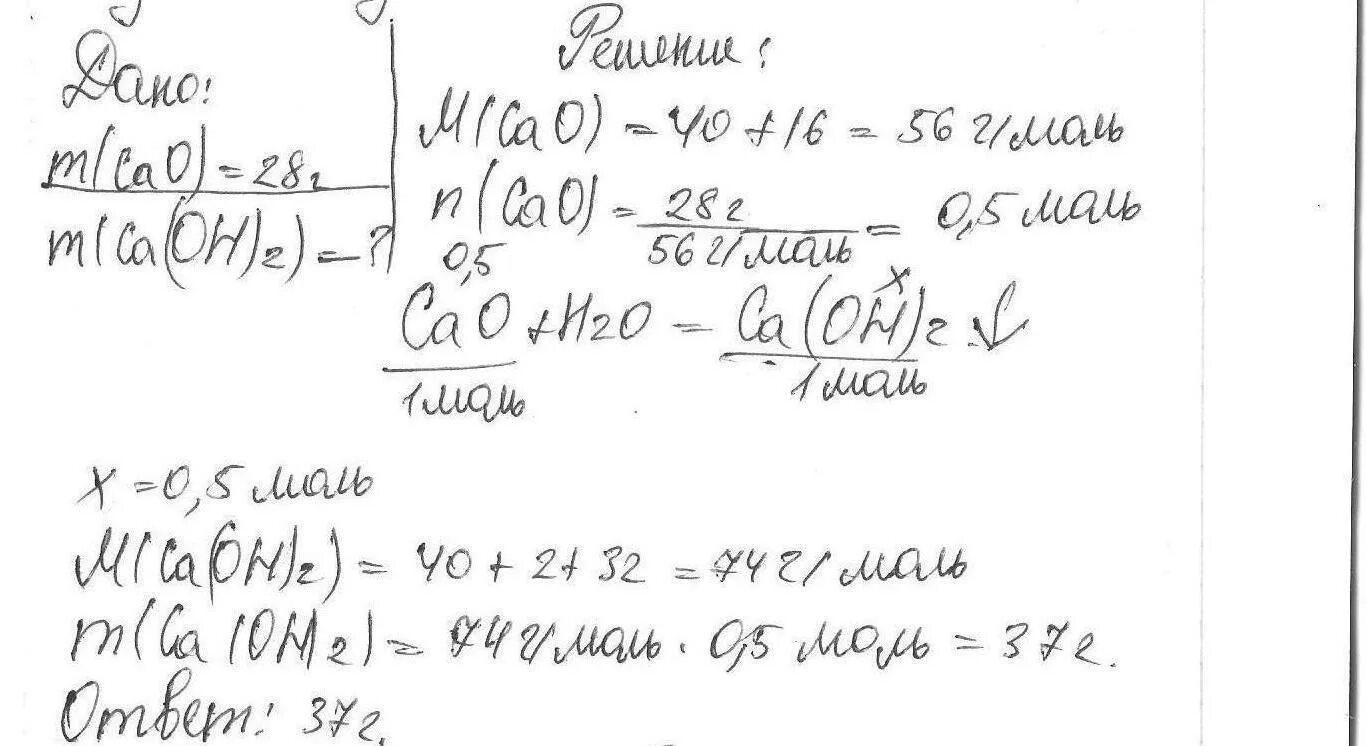 Дано:
m(CaO) = 28г
m(Ca(OH)2) = ?
Решение:
M(CaO) = 40 + 16 = 56 г/моль
n(CaO) = 28 г / 56 г/моль = 0,5 моль
0,5 x
CaO + H2O = Ca(OH)2 ↓
1 моль 1 моль
x = 0,5 моль
M(Ca(OH)2) = 40 + 2 + 32 = 74 г/моль
m(Ca(OH)2) = 74 г/моль · 0,5 моль = 37 г.
Ответ: 37 г.